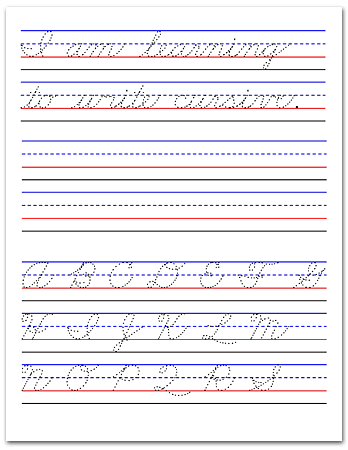 I am learning
to write cursive.
A B C D E F G
H I J K L M
N O P Q R S